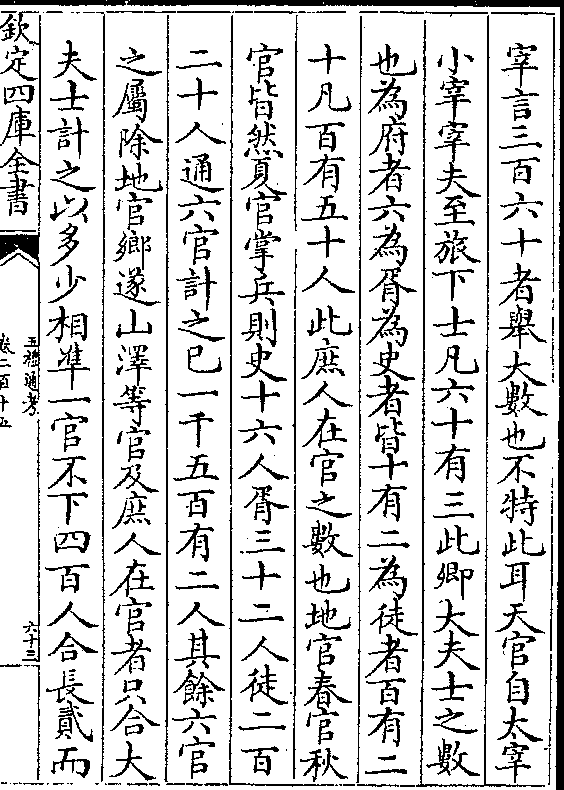 宰言三百六十者舉大數也不特此耳天官自太宰
小宰宰夫至旅下士凡六十有三此卿大夫士之數
也為府者六為胥為史者皆十有二為徒者百有二
十凡百有五十人此庶人在官之數也地官春官秋
官皆然夏官掌兵則史十六人胥三十二人徒二百
二十人通六官計之已一千五百有二人其餘六官
之屬除地官鄉遂山澤等官及庶人在官者只合大
夫士計之以多少相準一官不下四百人合長貳而
欽定四庫全書
五禮通考
卷二百十五
六十三